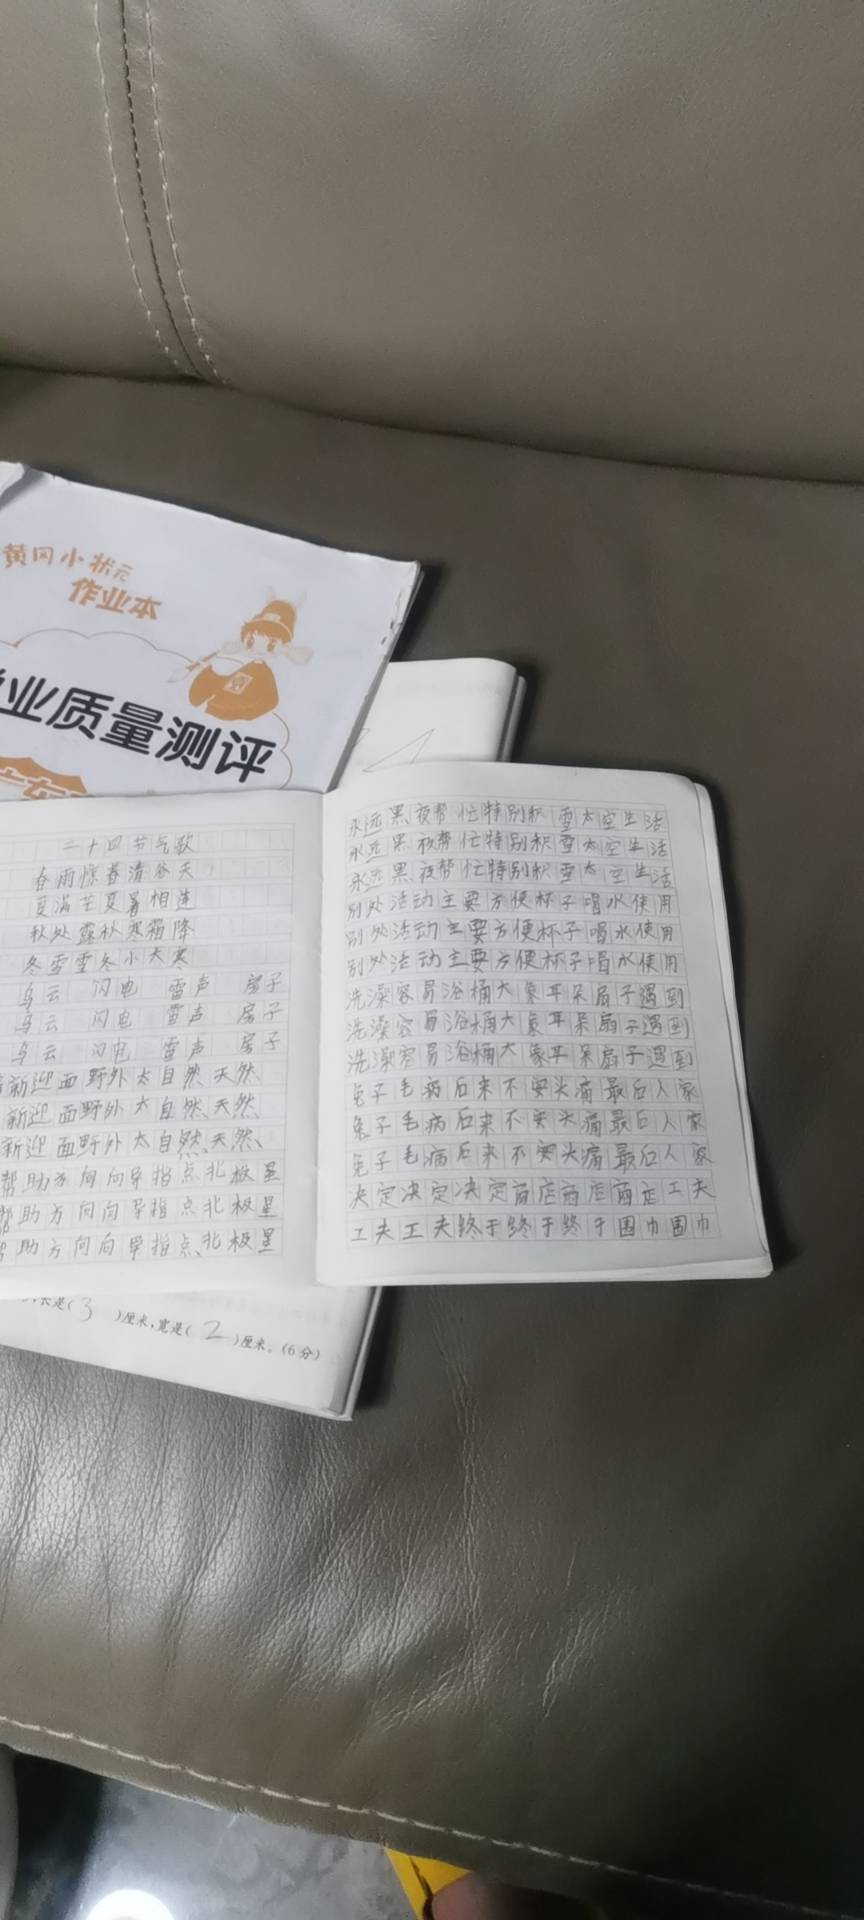 黄冈小状元
作业本
业质量测评
二十四节气歌
春雨惊春清谷天
夏满芒夏暑相连
秋处露秋寒霜降
冬雪雪冬小大寒
乌云 闪电 雷声 房子
乌云 闪电 雷声 房子
乌云 闪电 雷声 房子
新迎面野外大自然、天然、
新迎面野外大自然、天然、
新迎面野外大自然、天然、
帮助方向向导指点北极星
帮助方向向导指点北极星
助方向向导指点、北极星
永远黑夜帮忙特别积雪太空生活
永远黑夜帮忙特别积雪太空生活
永远黑夜帮忙特别积雪太空生活
别处活动主要方便杯子喝水使用
别处活动主要方便杯子喝水使用
别处活动主要方便杯子喝水使用
洗澡容易浴桶大象耳朵扇子遇到
洗澡容易浴桶大象耳朵扇子遇到
洗澡容易浴桶大象耳朵扇子遇到
兔子毛病后来不安头痛最后人家
兔子毛病后来不安头痛最后人家
兔子毛病后来不安头痛最后人家
决定决定决定商店商店商店工夫
工夫工夫终于终于终于围巾围巾
长是(3)厘米,宽是(2)厘米。(6分)